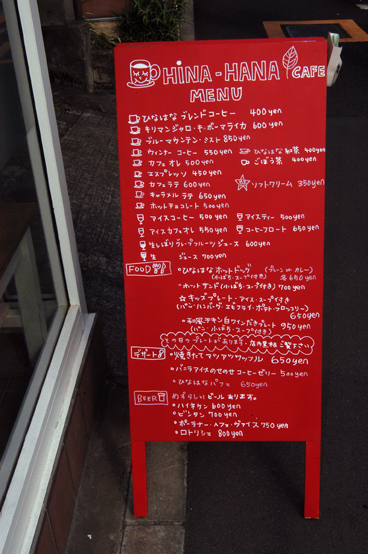 HiNA-HANA CAFE
MENU
ひなはな ブレンドコーヒー 400yen
キリマンジャロ・キーボー・マライカ 600yen
ブルーマウンテン・ミスト 850yen
ウィンナーコーヒー 550yen
ひなはな紅茶 400yen
カフェオレ 500yen
ごぼう茶 400yen
エスプレッソ 450yen
カフェラテ 600yen
ソフトクリーム 350yen
キャラメルラテ 650yen
ホットチョコレート 500yen
アイスコーヒー 500yen
アイスティー 500yen
アイスカフェオレ 550yen
コーヒーフロート 650yen
生しぼりグレープフルーツジュース 600yen
生 ジュース 700yen
FOOD
ひなはなホットドッグ (プレーン or カレー)
(小ぼう・スープ付き) 各650yen
ホットサンド(小ぼう・スープ付き) 700yen
☆キッズプレート・アイス・スープ付き
(パン・ハンバーグ・エビフライ・ポテト・ブロッコリー)
650yen
和風チキン白ワインだきプレート 950yen
(パン・小ぼう・スープ付き)
その日のプレートがあります・店内黒板ご覧下さい
デザート
焼きたてマツマツワッフル 650yen
バニラアイスのせのせコーヒーゼリー 500yen
ひなはなパフェ 650yen
BEER
めずらしいビールあります。
ハイネケン 600yen
ビンタン 700yen
ポーラナー・ヘフェ・ヴァイス 750yen
ロトリシェ 800yen